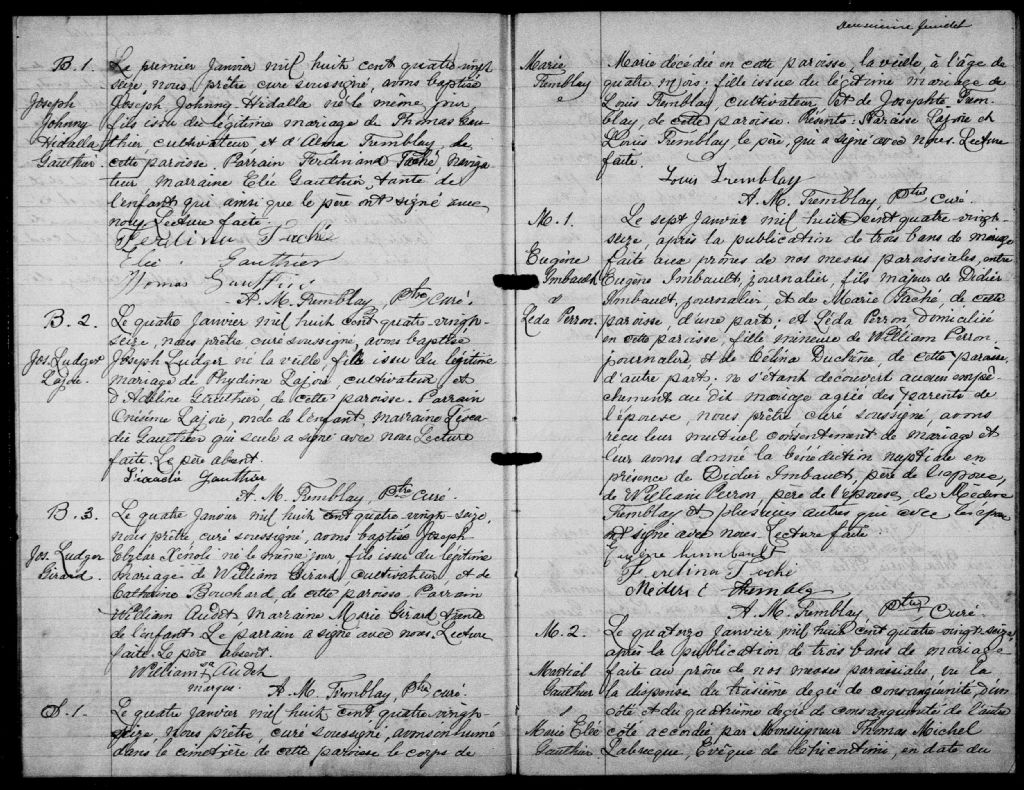 B. 1.
Joseph
Johnny
Hidalla
Gauthier.
Le premier Janvier mil huit cent quatre vingt
seize, nous, prêtre curé soussigné, avons baptisé
Joseph Johnny Hidalla né le même jour,
fils issu du légitime mariage de Thomas Gau
thier, cultivateur, et d'Alma Tremblay, de
cette paroisse Parrain Ferdinand Taché, naviga
teur, marraine Elée Gauthier, tante de
l'enfant qui ainsi que le père ont signé avec
nous Lecture faite.
Ferdina Taché
Elée Gauthier
Thomas Gauthier
A. M. Tremblay, Ptre Curé.
B. 2.
Jos. Ludger
Lajoie.
Le quatre Janvier mil huit cent quatre-vingt-
seize, nous prêtre curé soussigné, avons baptisé
Joseph Ludger né la veille fils issu du légitime
mariage de Phydime Lajoie, cultivateur et
d'Adeline Gauthier de cette paroisse. Parrain
Onésime Lajoie, oncle de l'enfant, marraine Léoca
die Gauthier qui seule a signé avec nous Lecture
faite. Le père absent.
Léocadie Gauthier
A. M. Tremblay, Ptre Curé.
B. 3.
Jos. Ludger
Girard.
Le quatre Janvier mil huit cent quatre-vingt-seize,
nous prêtre, curé soussigné, avons baptisé Joseph
Elzéar né le même jour fils issu du légitime
mariage de William Girard, cultivateur, et de
Catherine Bouchard, de cette paroisse. Parrain
William Audet, marraine Marie Girard tante
de l'enfant. Le parrain a signé avec nous. Lecture
faite. Le père absent.
William sa + Audet
marque.
A. M. Tremblay Ptre curé.
S. 1.
Le quatre Janvier mil huit cent quatre vingt-
seize, Nous prêtre, curé soussigné, avons inhumé
dans le cimetière de cette paroisse le corps de
Deuxième feuillet
Marie
Tremblay
Marie décédée en cette paroisse, la veille, à l'âge de
quatre mois; fille issue du légitime mariage de
Louis Tremblay, cultivateur, et de Josephte Trem
blay, de cette paroisse. Présents Narcisse Lajoie et
Louis Tremblay, le père, qui a signé avec nous. Lecture
faite.
Louis Tremblay
A. M. Tremblay, Ptre Curé.
M. 1.
Eugène
Imbault
&
Léda Perron.
Le sept Janvier mil huit cent quatre-vingt-
seize, après la publication de trois bans de mariage
faite aux prônes de nos messes paroissiales, entre
Eugène Imbault, journalier, fils majeur de Didier
Imbault, journalier, et de Marie Taché, de cette
paroisse, d'une part; et Léda Perron domiciliée
en cette paroisse, fille mineure de William Perron
journalier, et de Délvina Duchêne, de cette paroisse,
d'autre part: ne s'étant découvert aucun empê-
chement au dit mariage agréé des parents de
l'épouse, nous prêtre curé soussigné, avons
reçu leur mutuel consentement de mariage et
leur avons donné la bénédiction nuptiale en
présence de Didier Imbault, père de l'époux,
de William Perron, père de l'épouse, de Médéric
Tremblay et plusieurs autres qui avec les époux
ont signé avec nous. Lecture faite.
Eugène Imbault
Ferdina Taché
Médéric Tremblay
A. M. Tremblay, Ptre Curé
M. 2.
Martial
Gauthier
&
Marie Elée
Gauthier
Le quatorze Janvier mil huit cent quatre vingt-seize
après la publication de trois bans de mariage
faite au prône de nos messes paroissiales, vu la
la dispense du troisième degré de consanguinité, d'un
côté et du quatrième degré de consanguinité de l'autre
côté accordée par Monseigneur Thomas Michel
Labrecque, Evêque de Chicoutimi, en date du